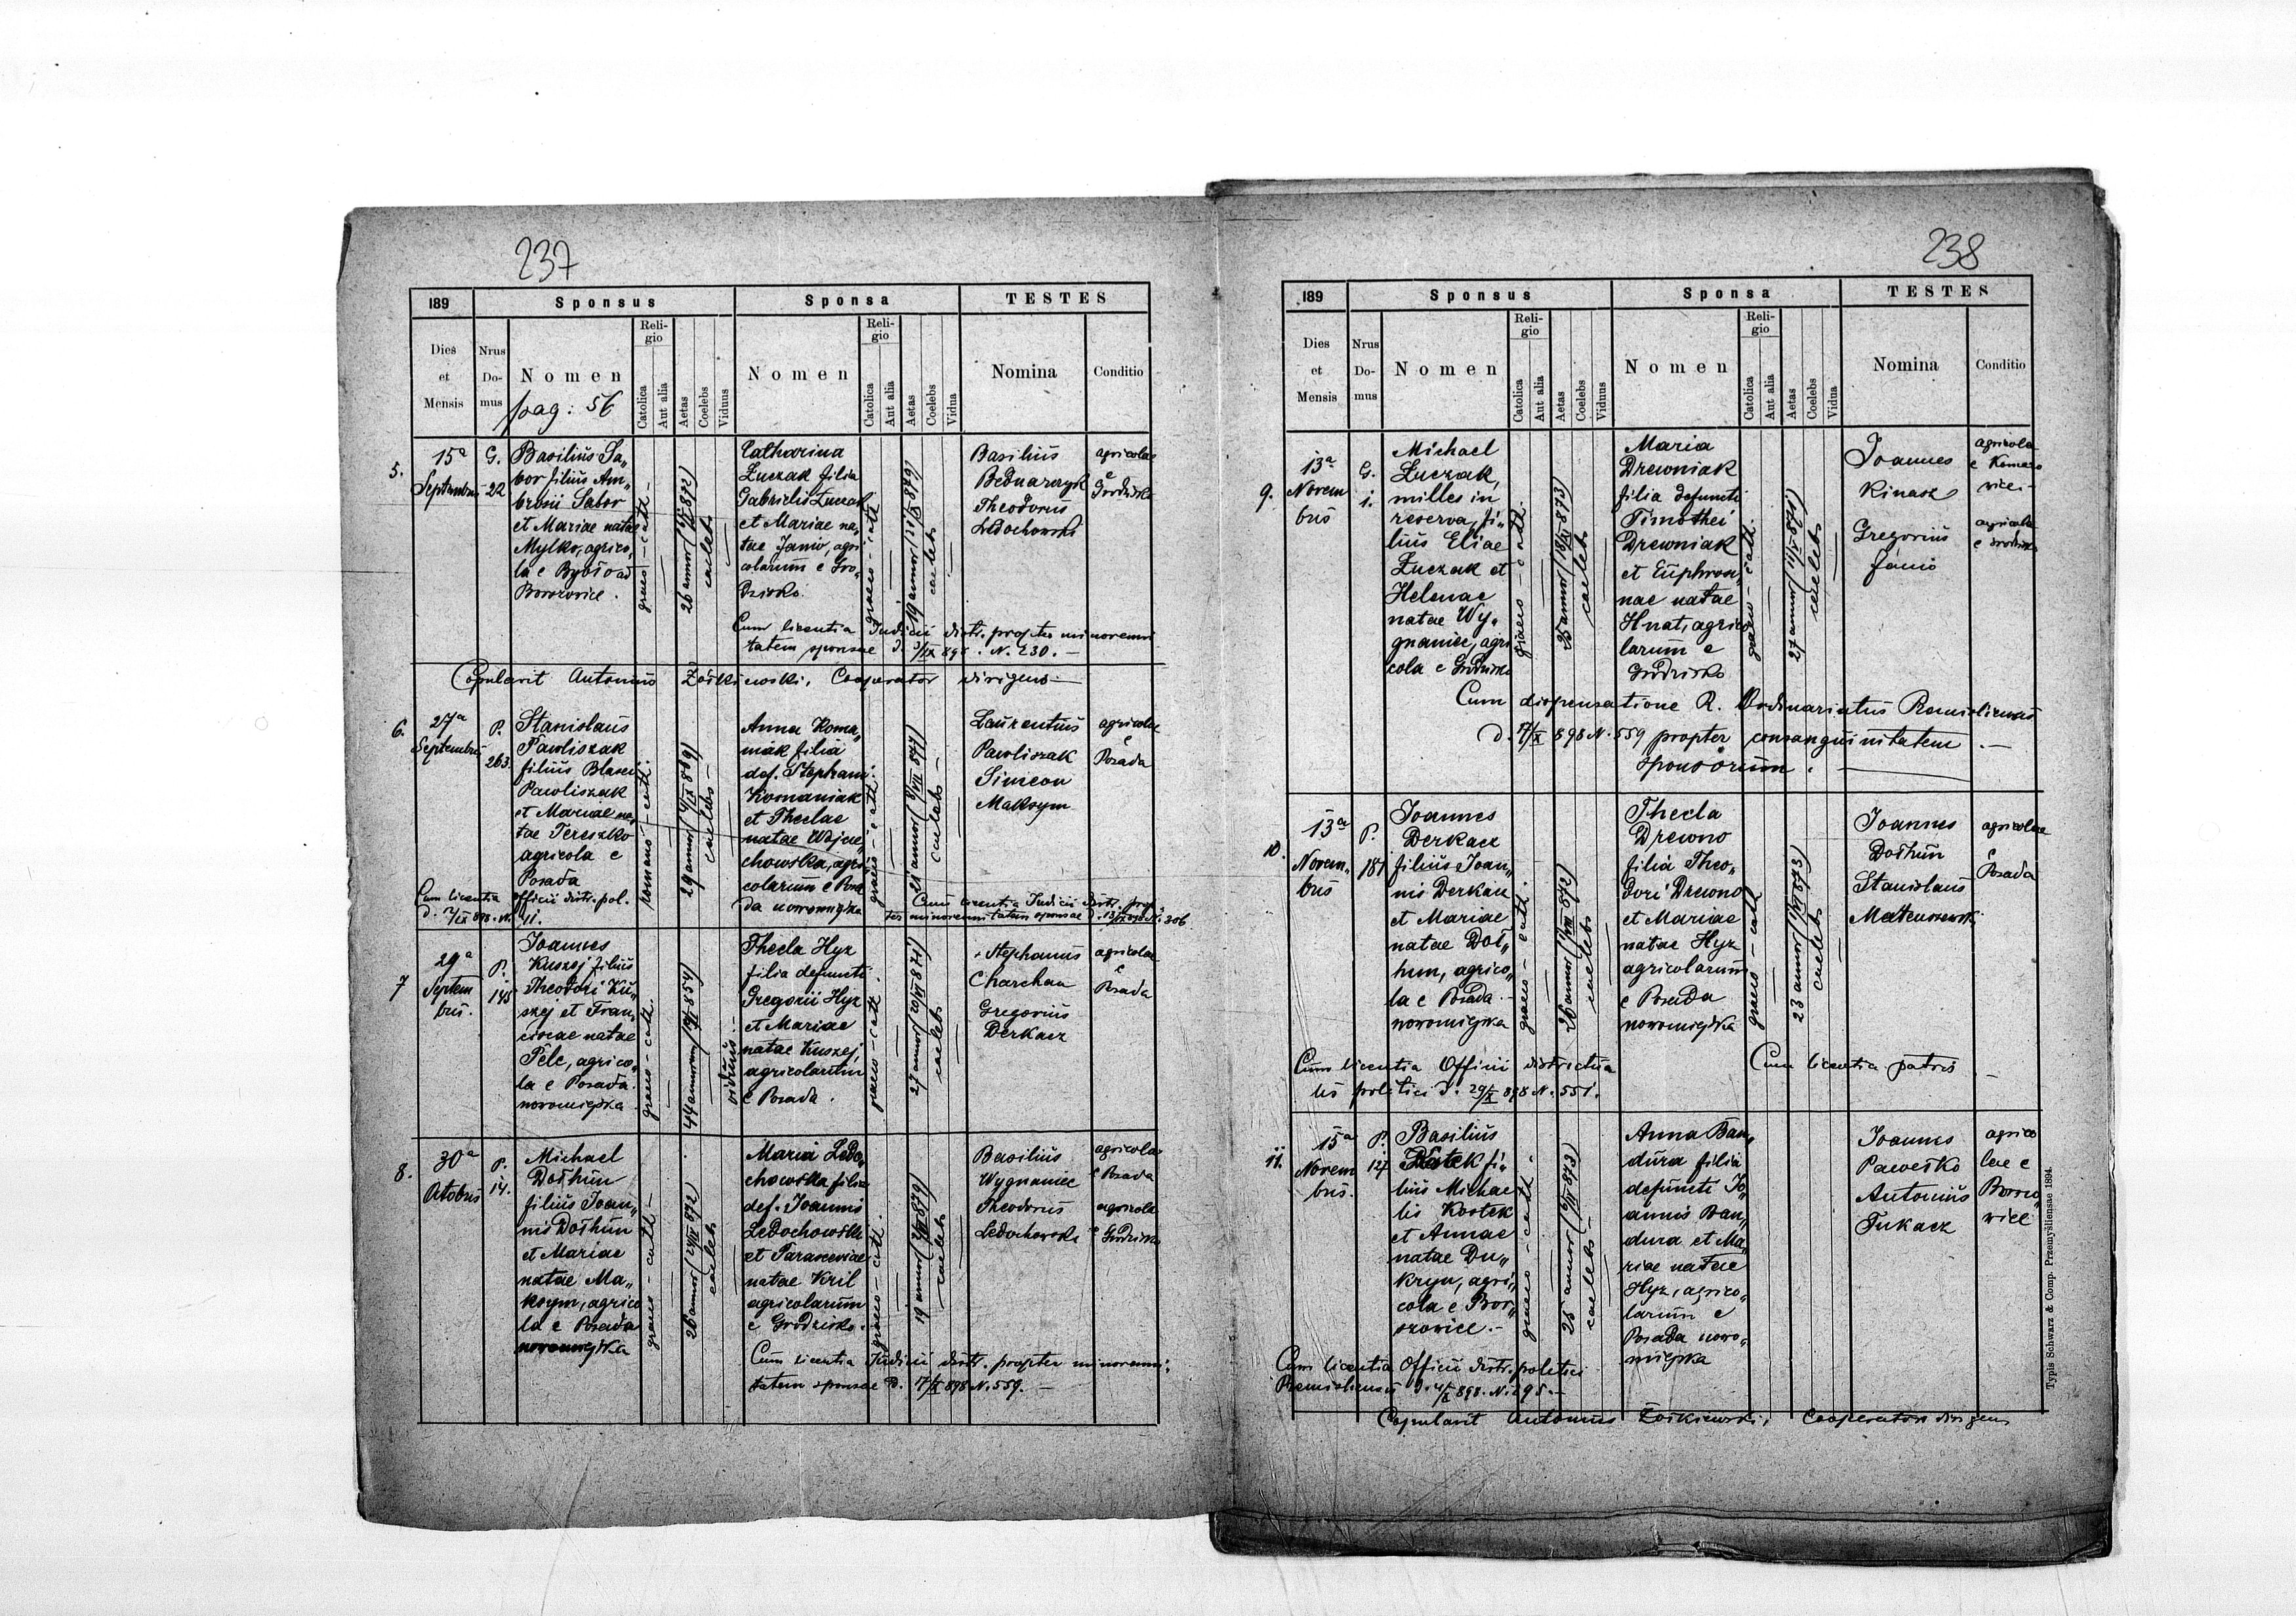 237
189
Sponsus
Sponsa
TESTES
Dies et Mensis
Nrus Domus
Nomen
pag: 56
Religio
Catolica
Aut alia
Aetas
Coelebs
Viduus
Nomen
Religio
Catolica
Aut alia
Aetas
Coelebs
Vidua
Nomina
Conditio
5.
15a
Septembris
G.
22
Basilius Sa„
bor filius Am„
brosii Sabor
et Mariae natae
Mylko, agrico„
la e
Borszowice.
graeco-cath-
26 annor
caelebs
Catharina
Łuczak filia
Gabrielis Łuczak
et Mariae na„
tae Janio, agri„
colarum e Gro„
dzisko.
graeco-cath
19 annor
caelebs
Basilius
Bednarczyk
Theodorus
Ledochowski
agricolae
e
Grodzisko
Cum licentia Judicii distr. propter minorenni
tatem sponsae N. 230. -
Copulavit Antonius Żółkiewski, Cooperator dirigens
6.
27a
Septembris
P.
263.
Stanislaus
Pawliszak
filius Blasei
Pawliszak
et Mariae na„
tae Tereszko
agricola e
Posada
romano-cath.
29 annor
caelebs-
Anna Roma„
niak filia
def. Stephani
Romaniak
et Theclae
natae Wojcie„
chowska, agri„
colarum e Posa
da nowomiejska
graeco-cath
21 annor
caelebs
Laurentius
Pawliszak
Simeon
Maksym
agricolae
e
Posada
Cum licentia officii distr. pol.
Cum licentia Judicii distr. prop„
ter minorennitatem sponsae N. 306
7
29a
Septem
bris.
P.
145
Joannes
Kuszej filius
Theodori Ku„
szej et Fran„
ciscae natae
Pelc, agrico„
la e Posada
nowomiejska
graeco-cath.
44 annorum
viduus
Thecla Hyz
filia defuncti
Gregorii Hyz
et Mariae
natae Kuszej,
agricolarum
e Posada.
graeco-cath
27 annor
caelebs
Stephanus
Charchan
Gregorius
Derkacz
agricolae
e
Posada
8.
30a
Octobris
P.
14.
Michael
Dołhun
filius Joan„
nis Dołhun
et Mariae
natae Ma„
ksym, agrico
la e Posada
nowomiejska
graeco-cath-
26 annor
caelebs
Maria Ledo„
chowska filia
def. Joannis
Ledochowski
et Parasceviae
natae Kril
agricolarum
e Grodzisko.
graeco-cath.
19 annor
caelebs
Basilius
Wygnaniec
Theodorus
Ledochowski
agricola
e Posada
agricola
e Grodzisko
Cum licentia Judicii distr. propter minorenni„
tatem sponsae D. 7/X 898 N. 559. -
238
189
Sponsus
Sponsa
TESTES
Dies et Mensis
Nrus Domus
Nomen
Religio
Catolica
Aut alia
Aetas
Coelebs
Viduus
Nomen
Religio
Catolica
Aut alia
Aetas
Coelebs
Vidua
Nomina
Conditio
9.
13a
Novem
bris
G.
1.
Michael
Łuczak,
milles in
reserva, fi„
lius Eliae
Łuczak et
Helenae
natae Wy„
gnaniec, agri
cola e Grodzisko
graeco-cath.
25 annor
caelebs
Maria
Drewniak
filia defuncti
Timothei
Drewniak
et Euphrosi„
nae natae
Hnat, agrico
larum e
Grodzisko
graeco-cath.
27 annor
caelebs
Joannes
Kinasz
Gregorius
Janio
agricola
e Komaro
wice-
agricola
e Grodzisko
Cum dispensatione R. Ordinariatus Premisliensis
D. 7/X 898 N. 559 propter consanguinitatem .-
sponsorum.
10.
13a
Novem„
bris
P.
181
Joannes
Derkacz
filius Joan„
nis Derkacz
et Mariae
natae Doł„
hun, agrico„
la e Posada
nowomiejska
graeco-cath.
26 annor
caelebs
Thecla
Drewno
filia Theo„
dori Drewno
et Mariae
natae Hyz
agricolarum
e Posada
nowomiejska
graeco-cath
23 annor
caelebs
Joannes
Dołhun
Stanislaus
Mateuszewski
agricolae
e
Posada
Cum licentia Officii districtua
lis politici D. 29/X 898 N. 551.
Cum licentia patris -
11.
15a
Novem
bris.
P.
127
Basilius
Kostek fi„
lius Michae
lis Kostek
et Annae
natae Du„
kryn, agri„
cola e Bor„
szowice.-
graeco-cath-
25 annor
caelebs
Anna Ban„
dura filia
defuncti Jo„
annis Ban„
dura et Ma„
riae natae
Hyz, agrico„
larum e
Posada nowo„
miejska
Joannes
Pawełko
Antonius
Tukacz
agrico
lae e
Borszo„
wice
Cum licentia Officii distr. politici
Premisliensis
Copulavit Antonius Żółkiewski, Cooperator dirigens
Typis Schwarz & Comp. Przemyśliensae 1894.